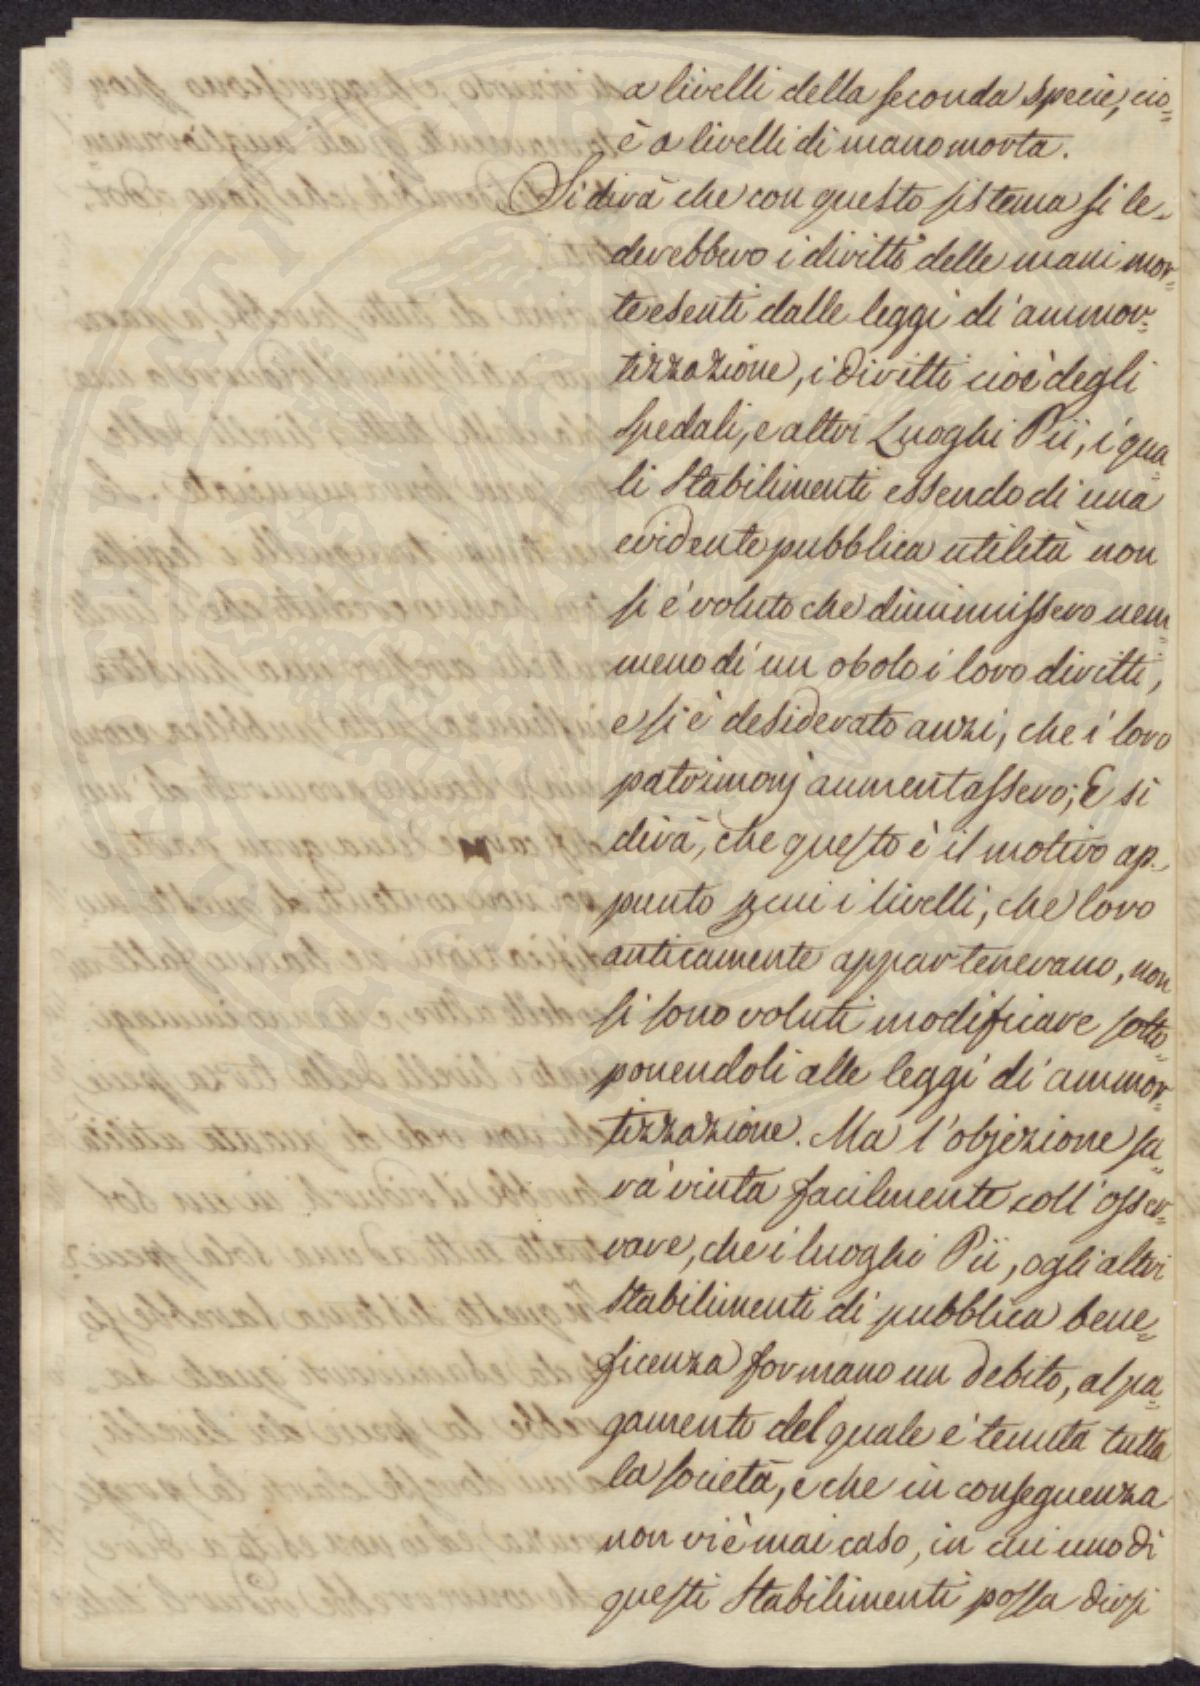 a livelli della seconda specie, cio=
è a livelli di mano morta.
Si dirà che con questo sistema si le=
derebbero i diritti delle mani mor=
te esenti dalle leggi di ammor=
tizzazione, i diritti cioè degli
spedali, e altri Luoghi Pii, i qua=
li stabilimenti essendo di una
evidente pubblica utilità non
si è voluto che diminuissero nem=
meno di un obolo i loro diritti,
e si è desiderato anzi, che i loro
patrimonj aumentassero; E si
dirà, che questo è il motivo ap=
punto i livelli, che loro
anticamente appartenevano, non
si sono voluti modificare sotto=
ponendoli alle leggi di ammor=
tizzazione. Ma l'objezione sa=
rà vinta facilmente coll'osser=
vare, che i luoghi Pii, o gli altri
stabilimenti di pubblica bene=
ficenza formano un debito, al pa=
gamento del quale è tenuta tutta
la società, e che in conseguenza
non vi è mai caso, in cui uno di
questi stabilimenti possa dirsi